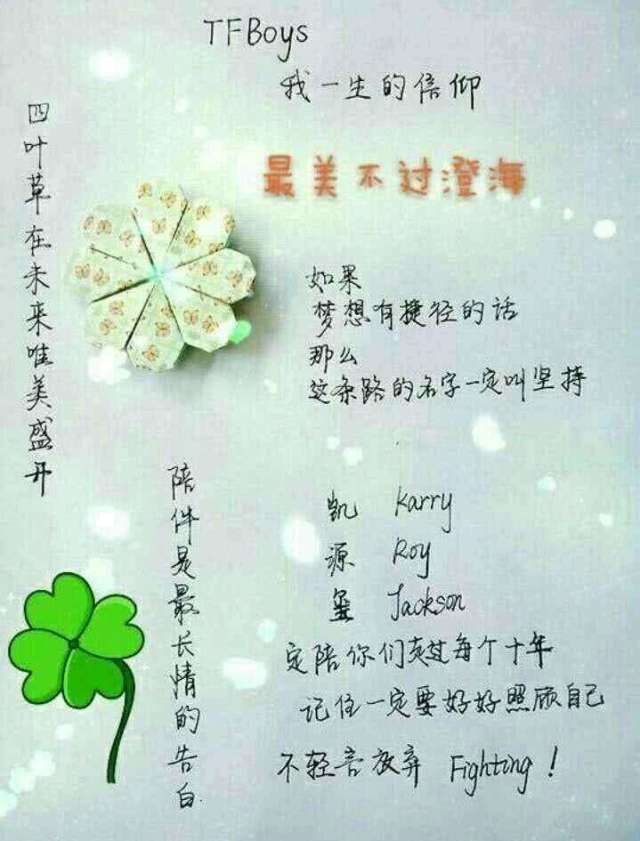 TFBoys
我一生的信仰
最美不过澄海
四叶草在未来唯美盛开
如果
梦想有捷径的话
那么
这条路的名字一定叫坚持
陪件是最长情的告白
凯 Karry
源 Roy
玺 Jackson
定陪你们走过每个十年
记住一定要好好照顾自己
不轻言放弃 Fighting!